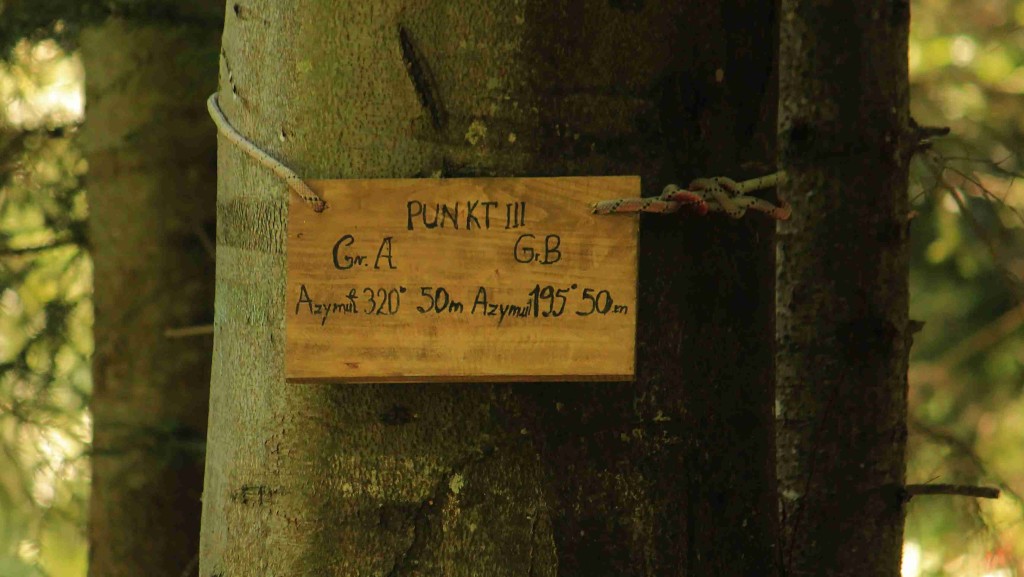 PUNKT III
Gr. A Gr. B
Azymut 320° 50m Azymut 195° 50m